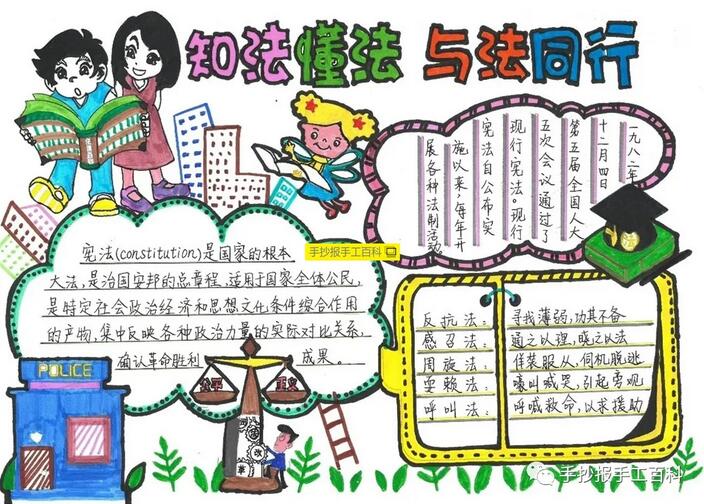 知法懂法 与法同行
一九八二年
十二月四日
第五届全国人大
五次会议通过了
现行宪法。现行
宪法自公布实
施以来,每年开
展各种法制活动
手抄报手工百科
宪法(constitution)是国家的根本
大法,是治国安邦的总章程,适用于国家全体公民,
是特定社会政治经济和思想文化条件综合作用
的产物,集中反映各种政治力量的实际对比关系,
确认革命胜利 成果。
公平 正义
POLICE
反抗法: 寻找薄弱,功其不备
感召法: 通之以理,晓之以法
周旋法: 佯装服从,伺机脱逃
耍赖法: 嚎叫喊哭,引起旁观
呼叫法: 呼喊救命,以求援助
手抄报手工百科